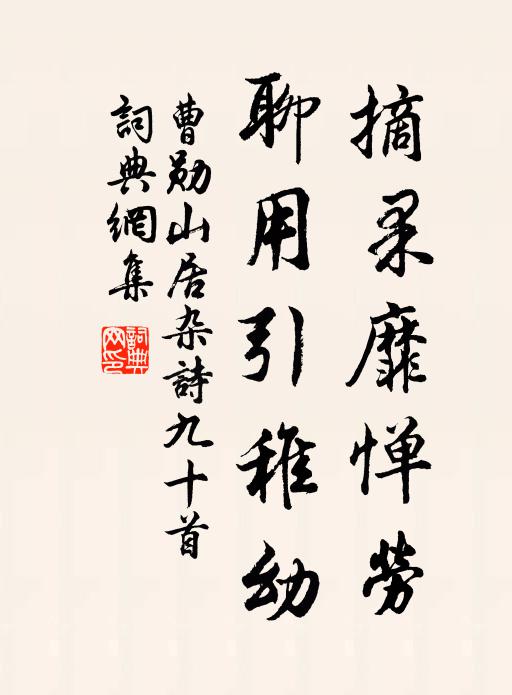 摘采靡惮勞
聊用引稚幼
曹勛山居杂詩九十首
詞典網集
詞典网印